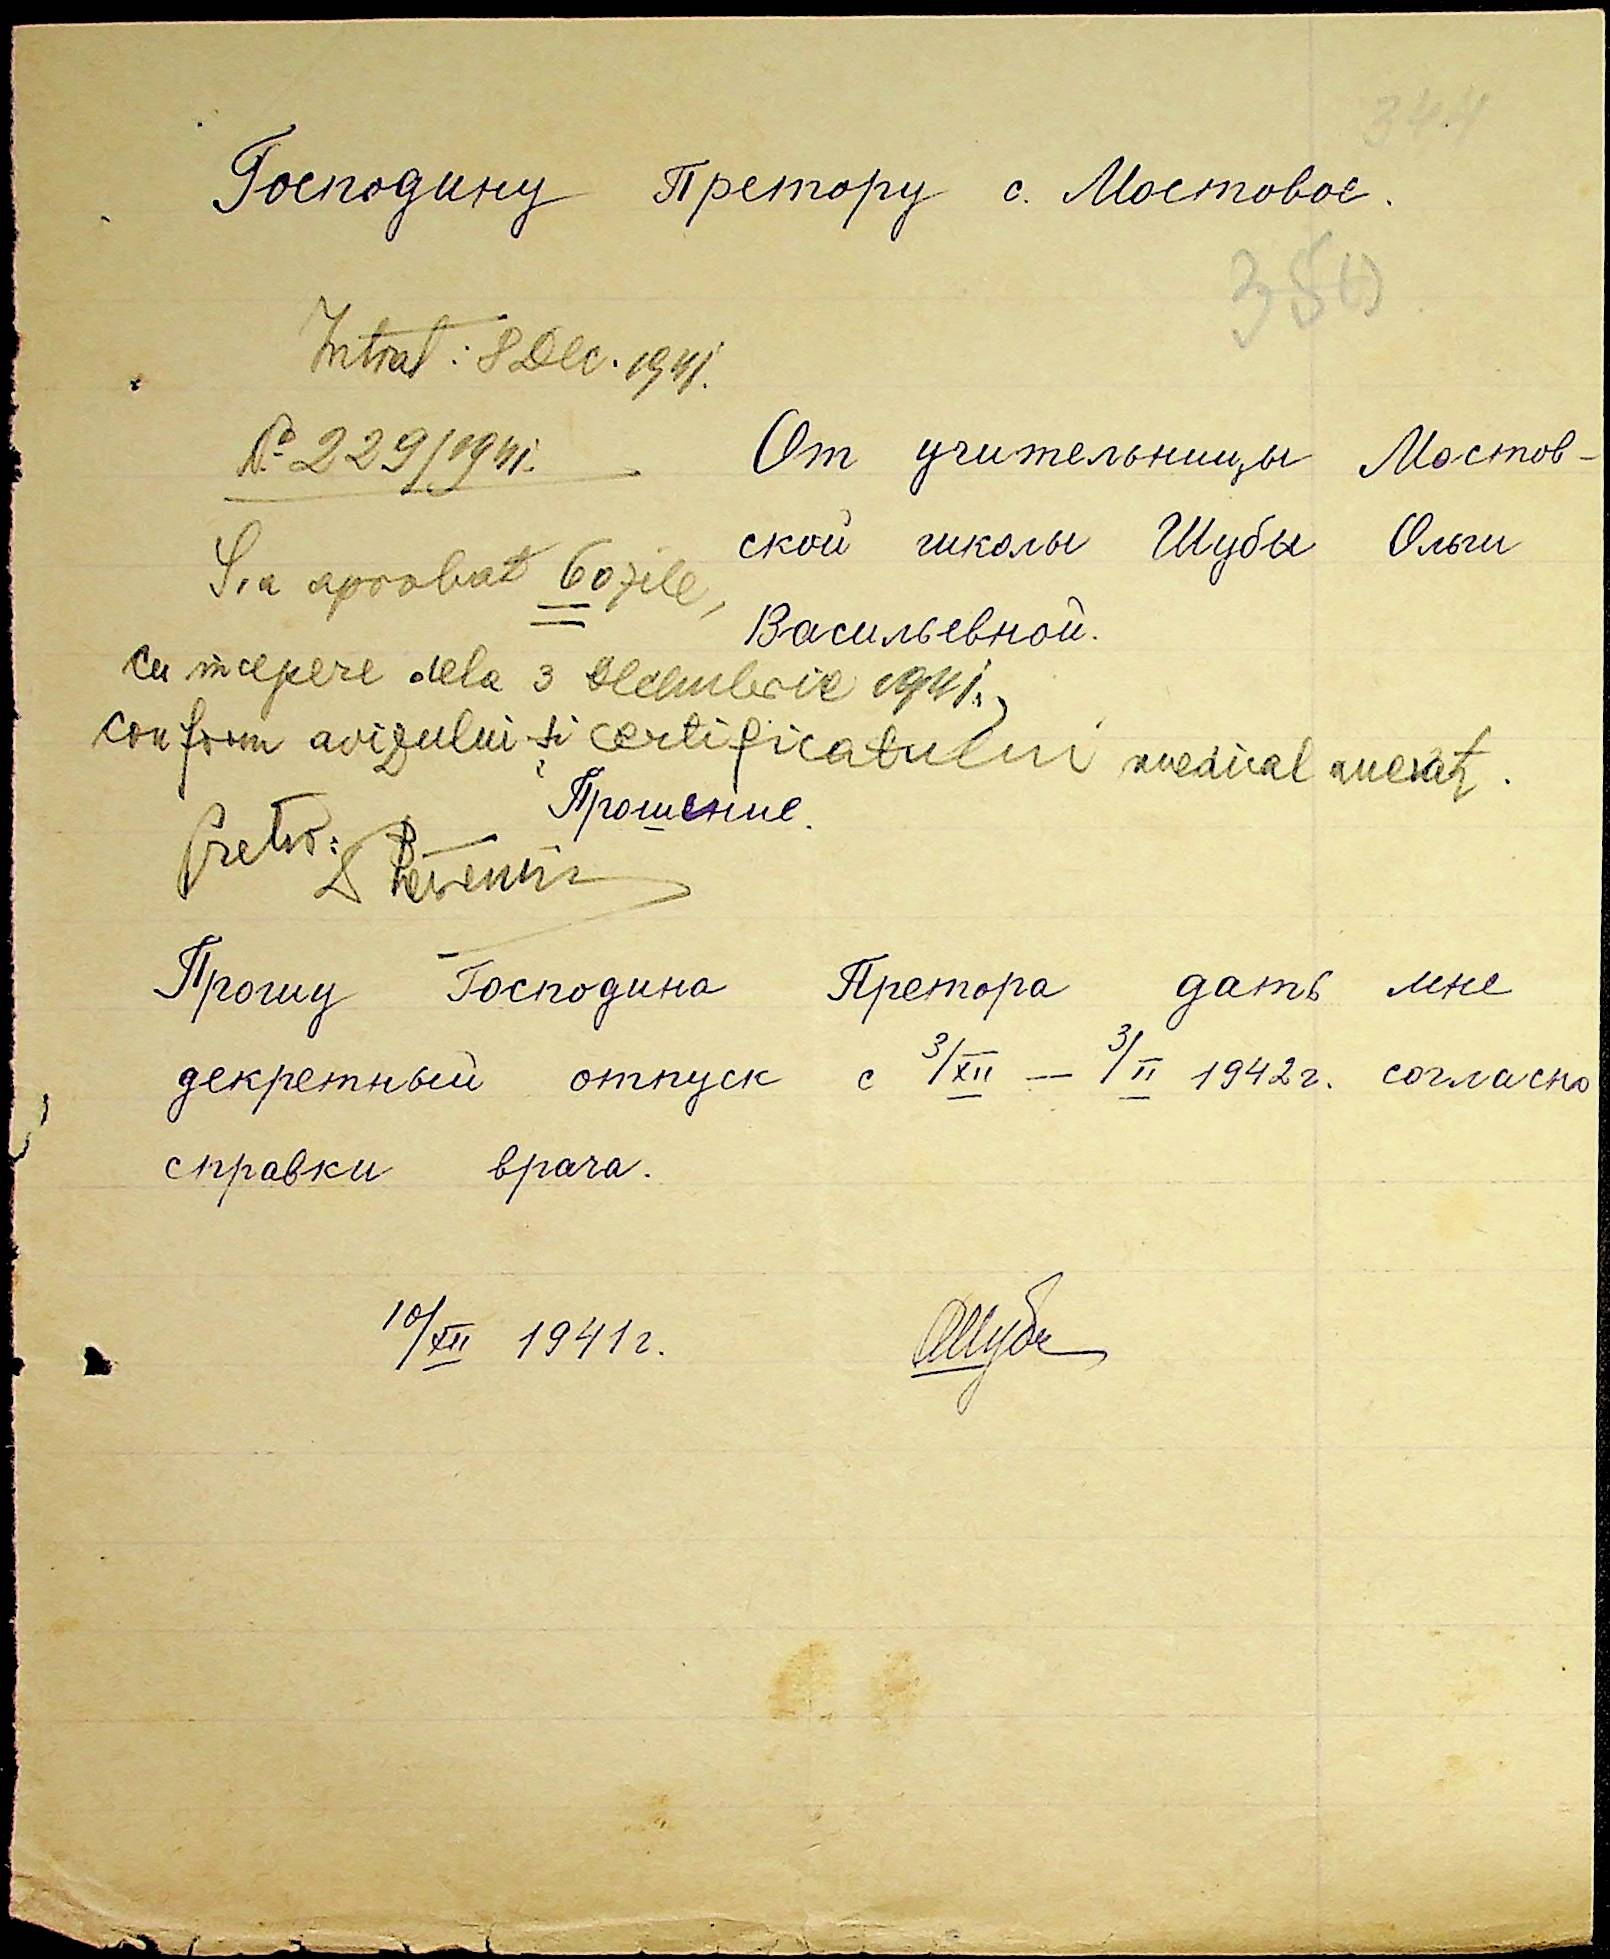 344
Господину Претору с. Мостовое.
350
Intrat: 8 Dec. 1941.
№ 229/1941.
От учительницы Мостов-
ской школы Шубы Ольги
Васильевной.
S'a aprobat 60 zile,
cu începere dela 3 Decembrie 1941,
conform avizului și certificatului medical anexat.
Прошение.
Pretor:
Прошу Господина Претора дать мне
декретный отпуск с 3/XII — 3/II 1942г. согласно
справки врача.
10/XII 1941г. ОШуба